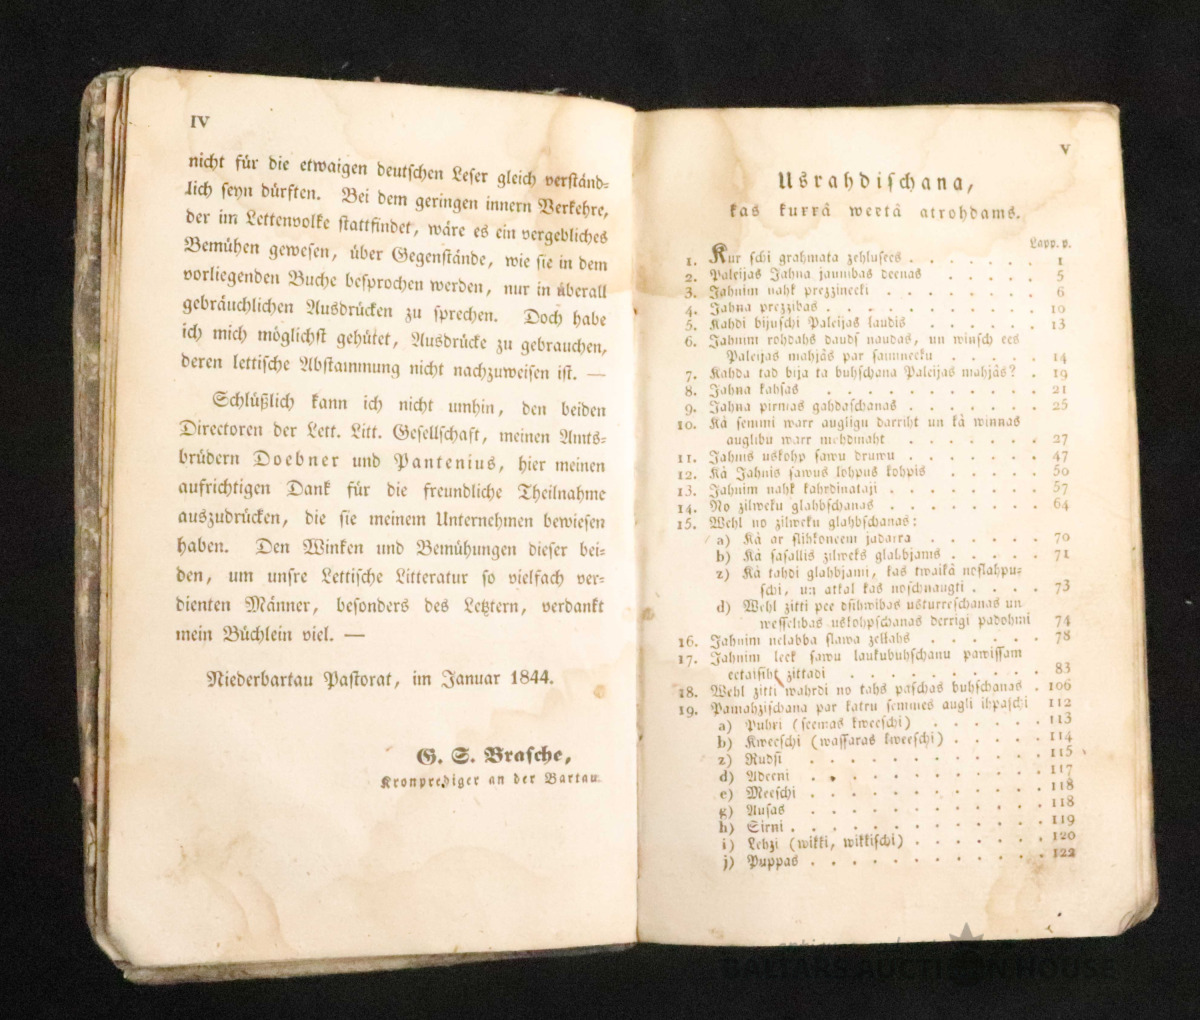 IV
nicht für die etwaigen deutschen Leser gleich verständ=
lich seyn dürften. Bei dem geringen innern Verkehre,
der im Lettenvolke stattfindet, wäre es ein vergebliches
Bemühen gewesen, über Gegenstände, wie sie in dem
vorliegenden Buche besprochen werden, nur in überall
gebräuchlichen Ausdrücken zu sprechen. Doch habe
ich mich möglichst gehütet, Ausdrücke zu gebrauchen,
deren lettische Abstammung nicht nachzuweisen ist. —
Schlüßlich kann ich nicht umhin, den beiden
Directoren der Lett. Litt. Gesellschaft, meinen Amts=
brüdern Doebner und Pantenius, hier meinen
aufrichtigen Dank für die freundliche Theilnahme
auszudrücken, die sie meinem Unternehmen bewiesen
haben. Den Winken und Bemühungen dieser bei=
den, um unsre Lettische Litteratur so vielfach ver=
dienten Männer, besonders des Letztern, verdankt
mein Büchlein viel. —
Niederbartau Pastorat, im Januar 1844.
G. S. Brasche,
Kronprediger an der Bartau.
V
Usrahdischana,
kas kurrâ weetâ atrohdams.
Lapp. p.
1. Kur schi grahmata zehlusees . . . . . . . 1
2. Paleijas Jahna jaunibas deenas . . . . . 5
3. Jahnim nahk prezzineeki . . . . . . . . 6
4. Jahna prezzibas . . . . . . . . . . . 10
5. Kahdi bijuschi Paleijas laudis . . . . . . 13
6. Jahnim rohdahs daudſ naudas, un winsch ees
Paleijas mahjâs par saimneeku . . . . . 14
7. Kahda tad bija ta buhschana Paleijas mahjâs? . 19
8. Jahna kahsas . . . . . . . . . 21
9. Jahna pirmas gahdaschanas . . . . . . . 25
10. Kâ semmi warr augligu darriht un kâ winnas
auglibu warr mehdinaht . . . . . . 27
11. Jahnis uskohp sawu druwu . . . . . . . 47
12. Kâ Jahnis sawus lohpus kohpis . . . . . 50
13. Jahnim nahk kahrdinataji . . . . . . . . 57
14. No zilweku glahbschanas . . . . . . . . 64
15. Wehl no zilweku glahbschanas:
a) Kâ ar slihkoneem jadarra . . . . . . 70
b) Kâ sasallis zilweks glahbjams . . . . . 71
z) Kâ tahdi glahbjami, kas twaikâ noslahpu=
schi, un atkal kas noschnaugti . . . . 73
d) Wehl zitti pee dsihwibas usturreschanas un
wesselibas uskohpschanas derrigi padohmi 74
16. Jahnim nelabba slawa zellahs . . . . . . 78
17. Jahnim leek sawu laukubuhschanu pawissam
eetaisiht zittadi . . . . . . . . . 83
18. Wehl zitti wahrdi no tahs paschas buhschanas . 106
19. Pamahzischana par katru semmes augli ihpaschi 112
a) Puhri (seemas kweeschi) . . . . . . 113
b) Kweeschi (wassaras kweeschi) . . . . . 114
z) Rudsi . . . . . . . . . . . . 115
d) Adeeni . . . . . . . . . . . 117
e) Meeschi . . . . . . . . . . . 118
g) Ausas . . . . . . . . . . . . 118
h) Sirni . . . . . . . . . . . . 119
i) Lehzi (wikki, wikkischi) . . . . . . . 120
j) Puppas . . . . . . . . . . . 122
BALTARS AUCTION HOUSE